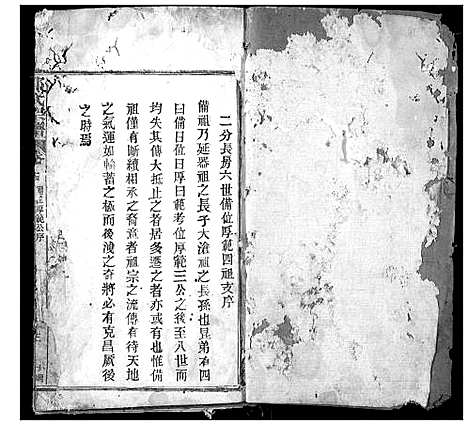 二分長房六世備位厚範四祖支序
備祖乃延器祖之長子大滄祖之長孫也兄弟有四
曰備曰位曰厚曰範考位厚範三公之後至八世而
均失其傳大抵止之者居多遷之者亦或有也惟備
祖僅有斷續相承之裔意者祖宗之流傳有待天地
之氣運如輪蓄之極而後洩之奇將必有克昌厥後
之時焉
範公序